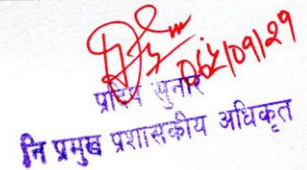 ०६८/०९/२९
प्रदिप सुनार
नि प्रमुख प्रशासकीय अधिकृत